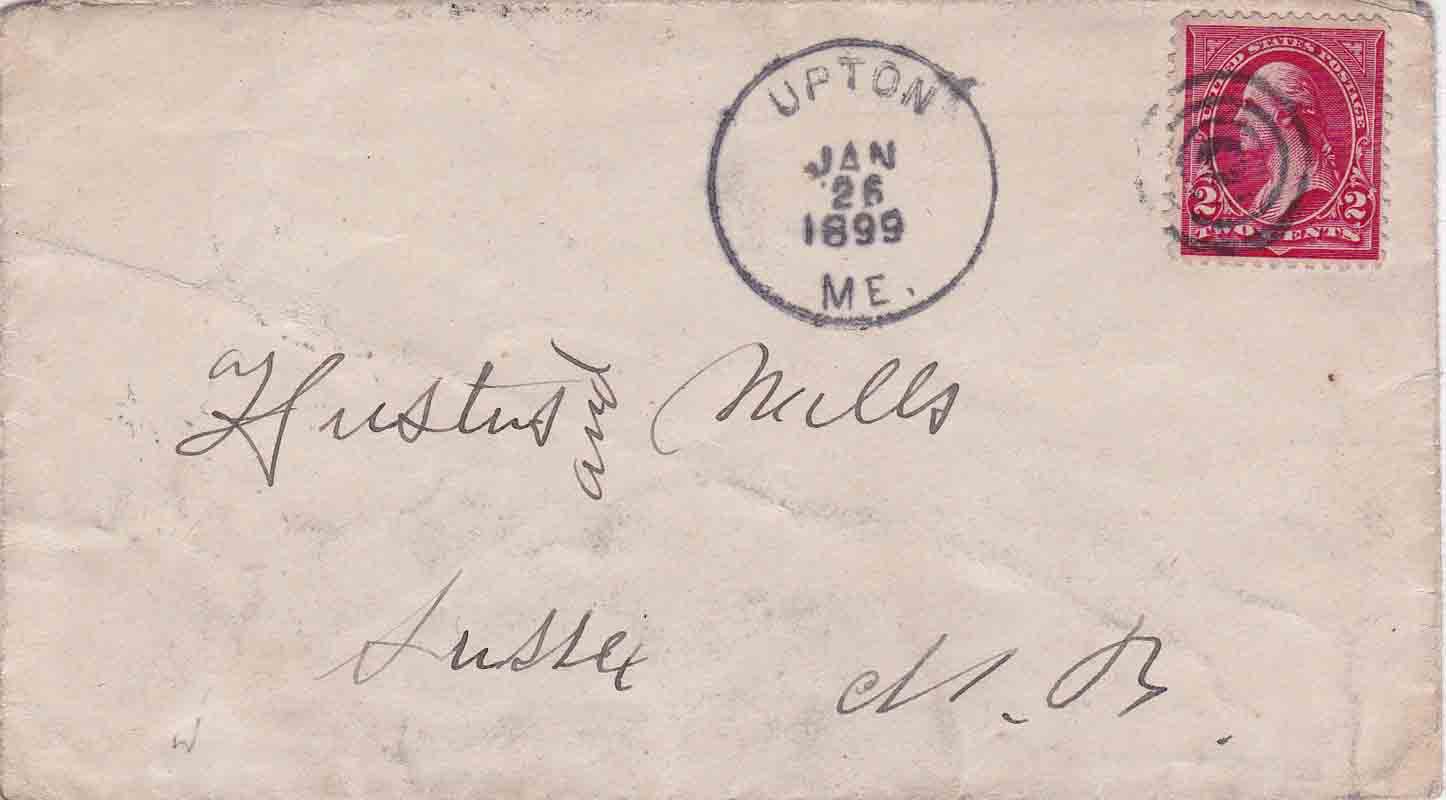 UPTON
JAN
26
1899
ME.
UNITED STATES POSTAGE
2 2
TWO CENTS
Hustus and Mills
Sussex N. B.